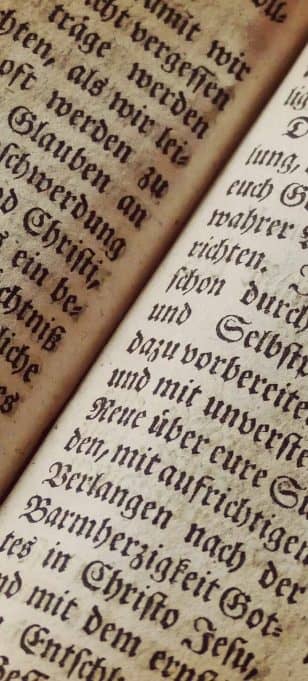 damit wir
nicht vergessen
träge werden
als wir lei-
oft werden zu
Glauben an
schwerdung
Christi,
ein be-
chtniß
liche
es
jung,
euch
wahrer
richten.
schon durch
und Selbst
dazu vorbereite
und mit unverste
Reue über eure
den, mit aufrichtigen
Verlangen nach der
Barmherzigkeit Got-
tes in Christo Jesu,
nd mit dem ern
Entschl